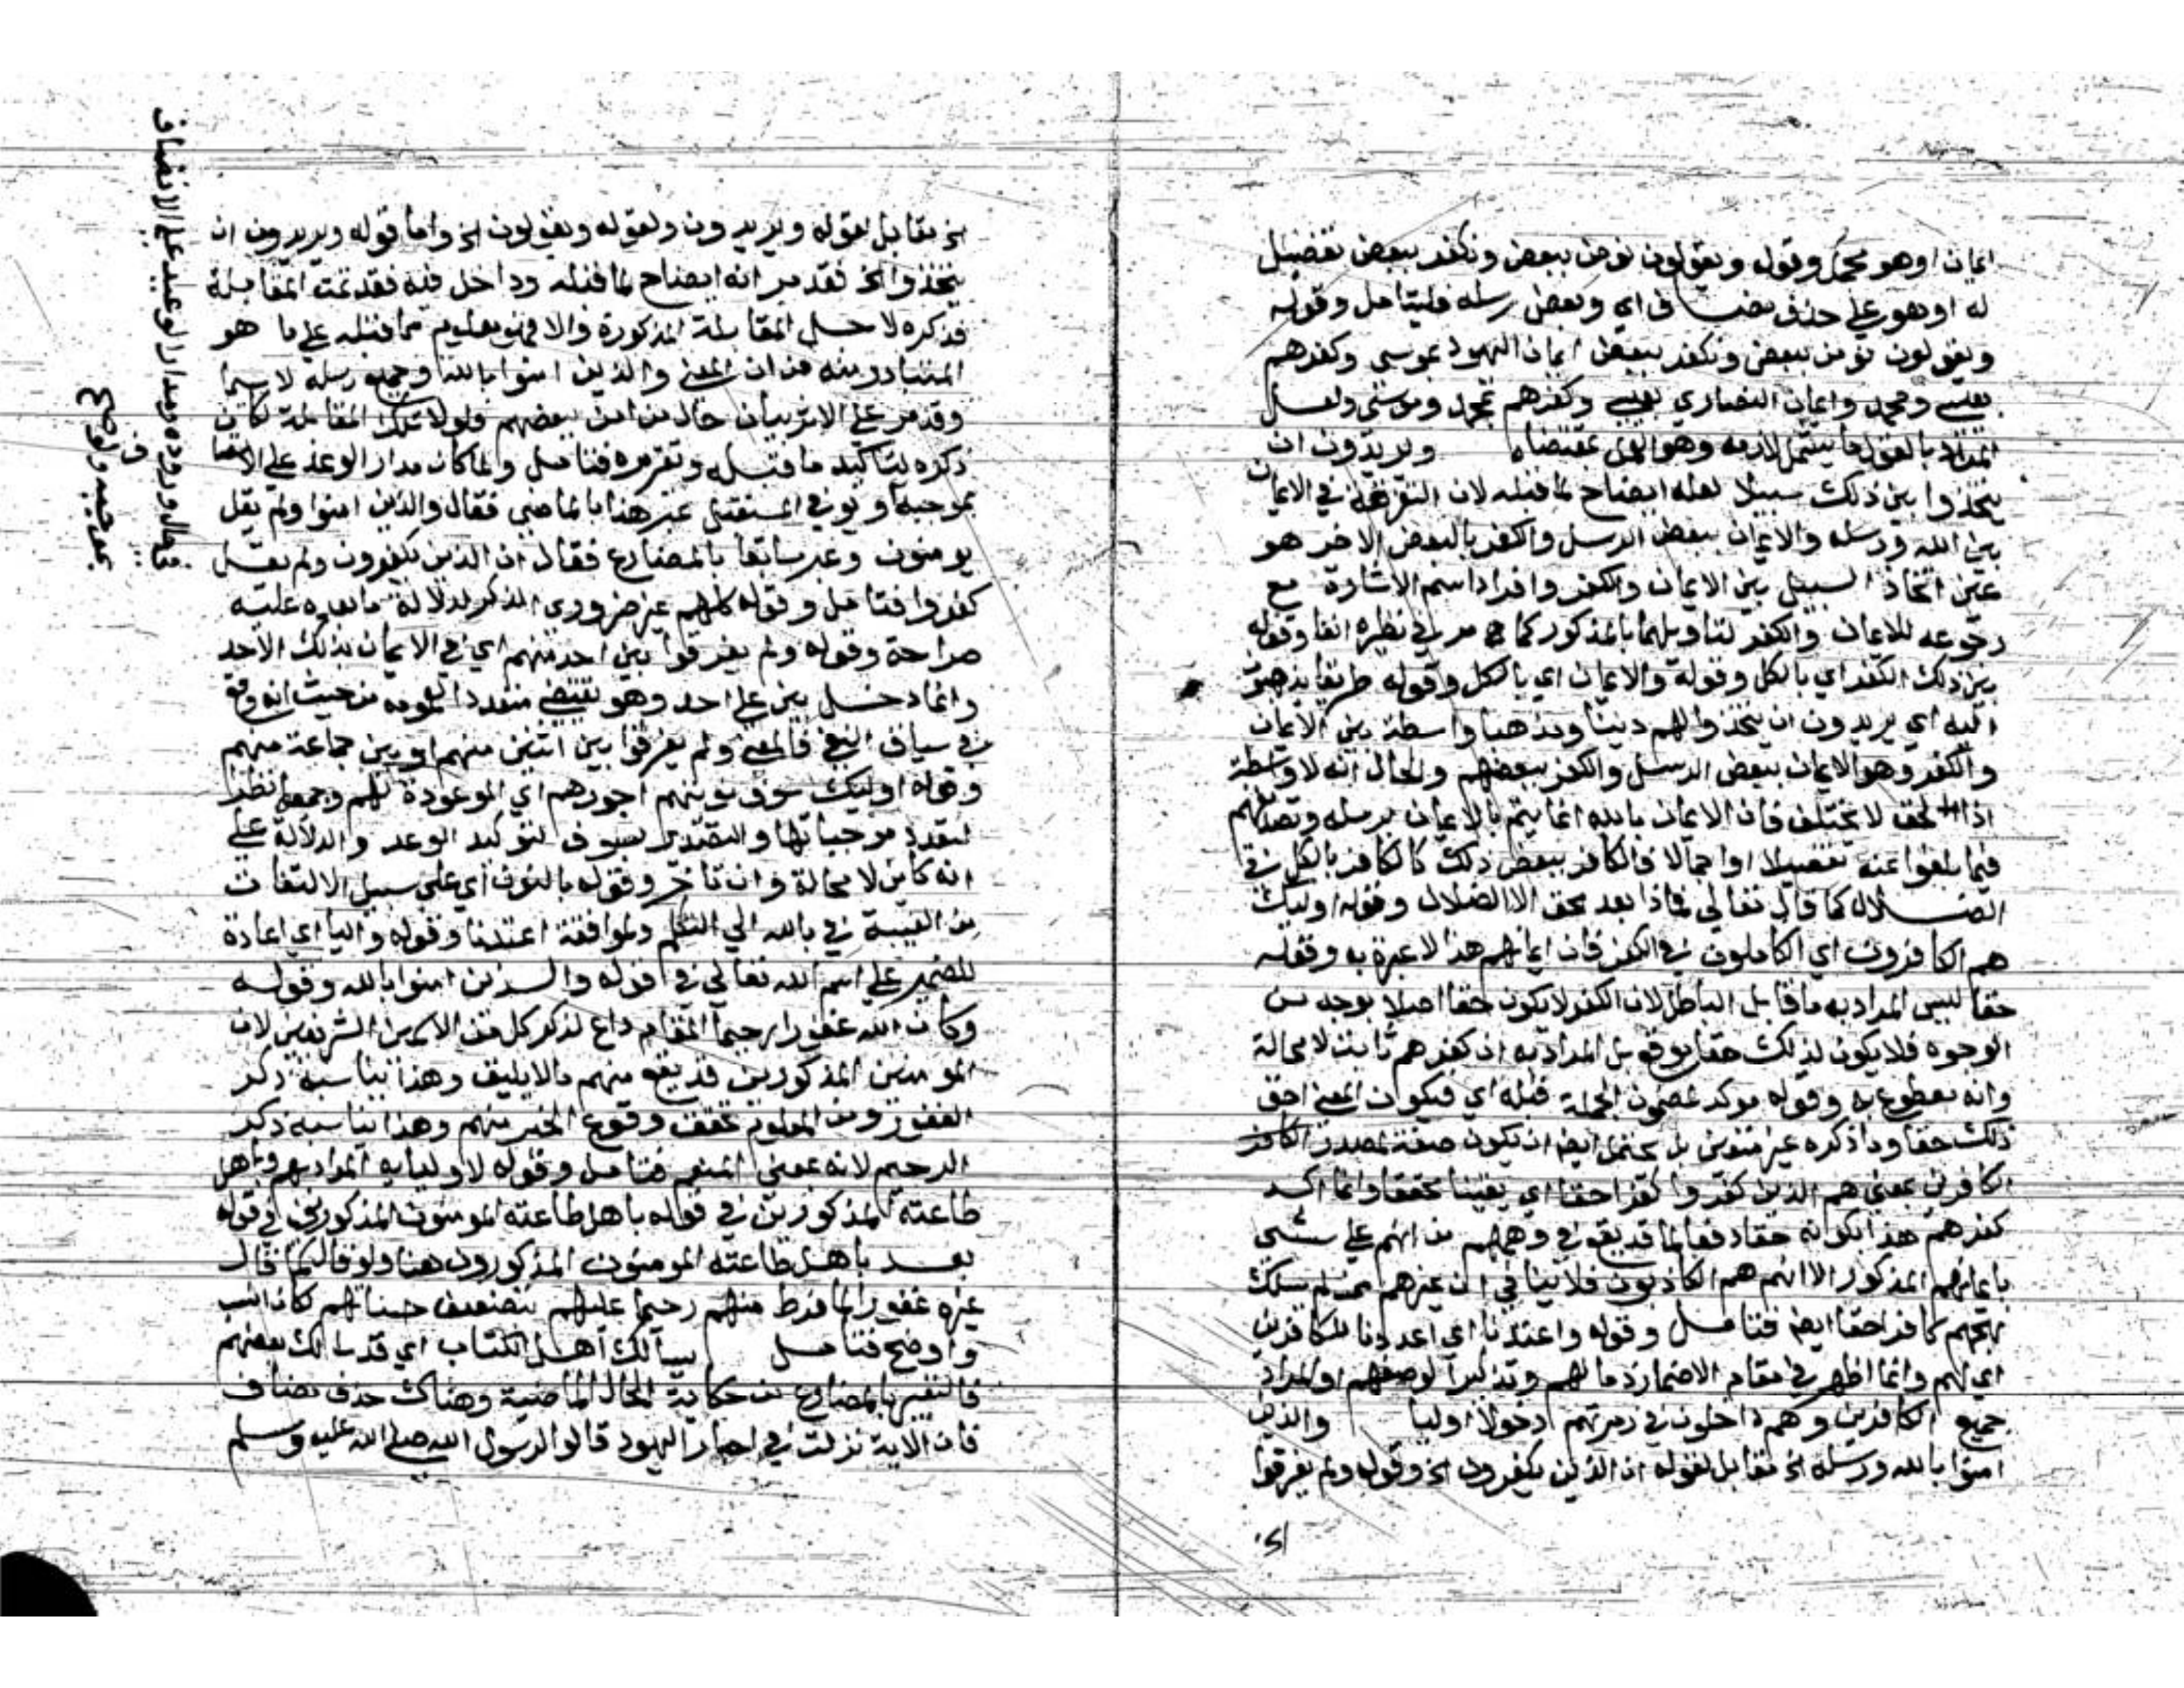 ايمان اوهو مجمل وقوله ويقولون نومن ببعض ونكفر ببعض تفصيل
له اوهو علي حذف مضاف اي وبعض رسله فليتامل وقوله
ويقولون نومن ببعض ونكفر ببعض ايمان اليهود بموسي وكفرهم
بعيسي ومحمد وايمان النصاري بعيسي وكفرهم بمحمد وموسي ولعل
المراد بالقول ما يشمل لازمه وهو بمقتضاه ويريدون ان
يتخذوا بين ذلك سبيلا لعله ايضاح لما قبله لان التفرقة في الايمان
بين الله ورسله والايمان ببعض الرسل والكفر بالبعض الاخر هو
عين اتخاذ السبيل بين الايمان والكفر وافراد اسم الاشارة مع
رجوعه للايمان والكفر لتاويلهما بالمذكور كما مر في نظيره انفا وقوله
بين ذلك الكفر اي بالكل وقوله والايمان اي بالكل وقوله طريقا يذهبون
اليه اي يريدون ان يتخذوا لهم دينا ومذهبا واسطة بين الايمان
والكفر وهو الايمان ببعض الرسل والكفر ببعضهم والحال انه لا واسطة
اذ الحق لا يختلف فان الايمان بالله انما يتم بالايمان برسله وتصديقهم
فيما بلغوا عنه تفصيلا او اجمالا فالكافر ببعض ذلك كالكافر بالكل في
الضلال كما قال تعالي فماذا بعد الحق الا الضلال وقوله اوليك
هم الكافرون اي الكاملون في الكفر فان ايمانهم هذا لا عبرة به وقوله
حقا ليس المراد به ما قابل الباطل لان الكفر لا يكون حقا اصلا بوجه من
الوجوه فلا يكون لذلك حقا بل المراد به ان كفرهم ثابت لا محالة
وانه مقطوع به وقوله موكد لمضمون الجملة قبله اي فيكون المعني احق
ذلك حقا وما ذكره غير متعين بل يحتمل ايضا ان يكون صفة لمصدر الكافر
الكافرين بمعني هم الذين كفروا كفرا حقا اي يقينا محققا وانما اكد
كفرهم هذا بكونه حقا دفعا لما قد يقع في وهمهم من انهم علي شي
بايمانهم المذكور الا انهم هم الكاذبون فلا ينافي ان غيرهم ممن لم يسلك
نهجهم كافر حقا ايضا فتامل وقوله واعتدنا اي اعددنا للكافرين
اي لهم وانما اظهر في مقام الاضمار ذما لهم وتذكيرا لوصفهم او المراد
جميع الكافرين وهم داخلون في زمرتهم دخولا اوليا والذين
امنوا بالله ورسله الخ مقابل لقوله ان الذين يكفرون الخ وقوله ولم يفرقوا
الخ مقابل لقوله ويريدون ولقوله ويقولون الخ واما قوله ويريدون ان
يتخذوا الخ فقد مر انه ايضاح لما قبله وداخل فيه فقد تمت المقابلة
فذكره لاجل المقابلة المذكورة والا فهو معلوم مما قبله علي ما هو
المتبادر منه من ان المعني والذين امنوا بالله وجميع رسله لا سيما
وقد مر علي الاثر بيان حال من امن ببعضهم فلولا تلك المقابلة لكان
ذكره لتاكيد ما قبله وتقريره فتامل ولما كان مدار الوعد علي الاتصاف
بموجبه ولو في المستقبل عبر هنا بالماضي فقال والذين امنوا ولم يقل
يومنون وعبر سابقا بالمضارع فقال ان الذين يكفرون ولم يقل
كفروا فتامل وقوله كلهم غير ضروري الذكر لدلالة ما بعده عليه
صراحة وقوله ولم يفرقوا بين احد منهم اي في الايمان بذلك الاحد
وانما دخل بين علي احد وهو يقتضي متعددا لعمومه من حيث انه وقع
في سياق النفي فالمعني ولم يفرقوا بين اثنين منهم او بين جماعة منهم
وقوله اوليك سوف نوتيهم اجورهم اي الموعودة لهم وجمعها نظرا
لتعدد موجباتها والتصدير بسوف لتوكيد الوعد والدلالة علي
انه كاين لا محالة وان تاخر وقوله بالنون اي علي سبيل الالتفات
من الغيبة في بالله الي التكلم ولموافقة اعتدنا وقوله والياء اي اعادة
للضمير علي اسم الله تعالي في قوله والذين امنوا بالله وقوله
وكان الله غفورا رحيما المقام داع لذكر كل من الاسمين الشريفين لان
المومنين المذكورين قد يقع منهم ما لا يليق وهذا يناسبه ذكر
الغفور ومن المعلوم تحقق وقوع الخير منهم وهذا يناسبه ذكر
الرحيم لانه بمعني المنعم فتامل وقوله لاوليايه المراد بهم وباهل
طاعته المذكورين في قوله باهل طاعته المومنون المذكورين في قوله
بعد باهل طاعته المومنون المذكورون هنا ولو قال كما قال
غيره غفورا لما فرط منهم رحيما عليهم بتضعيف حسناتهم كان انسب
واوضح فتامل يسالك اهل الكتاب اي قد سالك بعضهم
فالتعبير بالمضارع من حكاية الحال الماضية وهناك حذف مضاف
فان الاية نزلت في احبار اليهود قالوا لرسول الله صلي الله عليه وسلم
في الحال وروده ومدار الوعيد علي الاتصاف
بموجبه ولو
صح